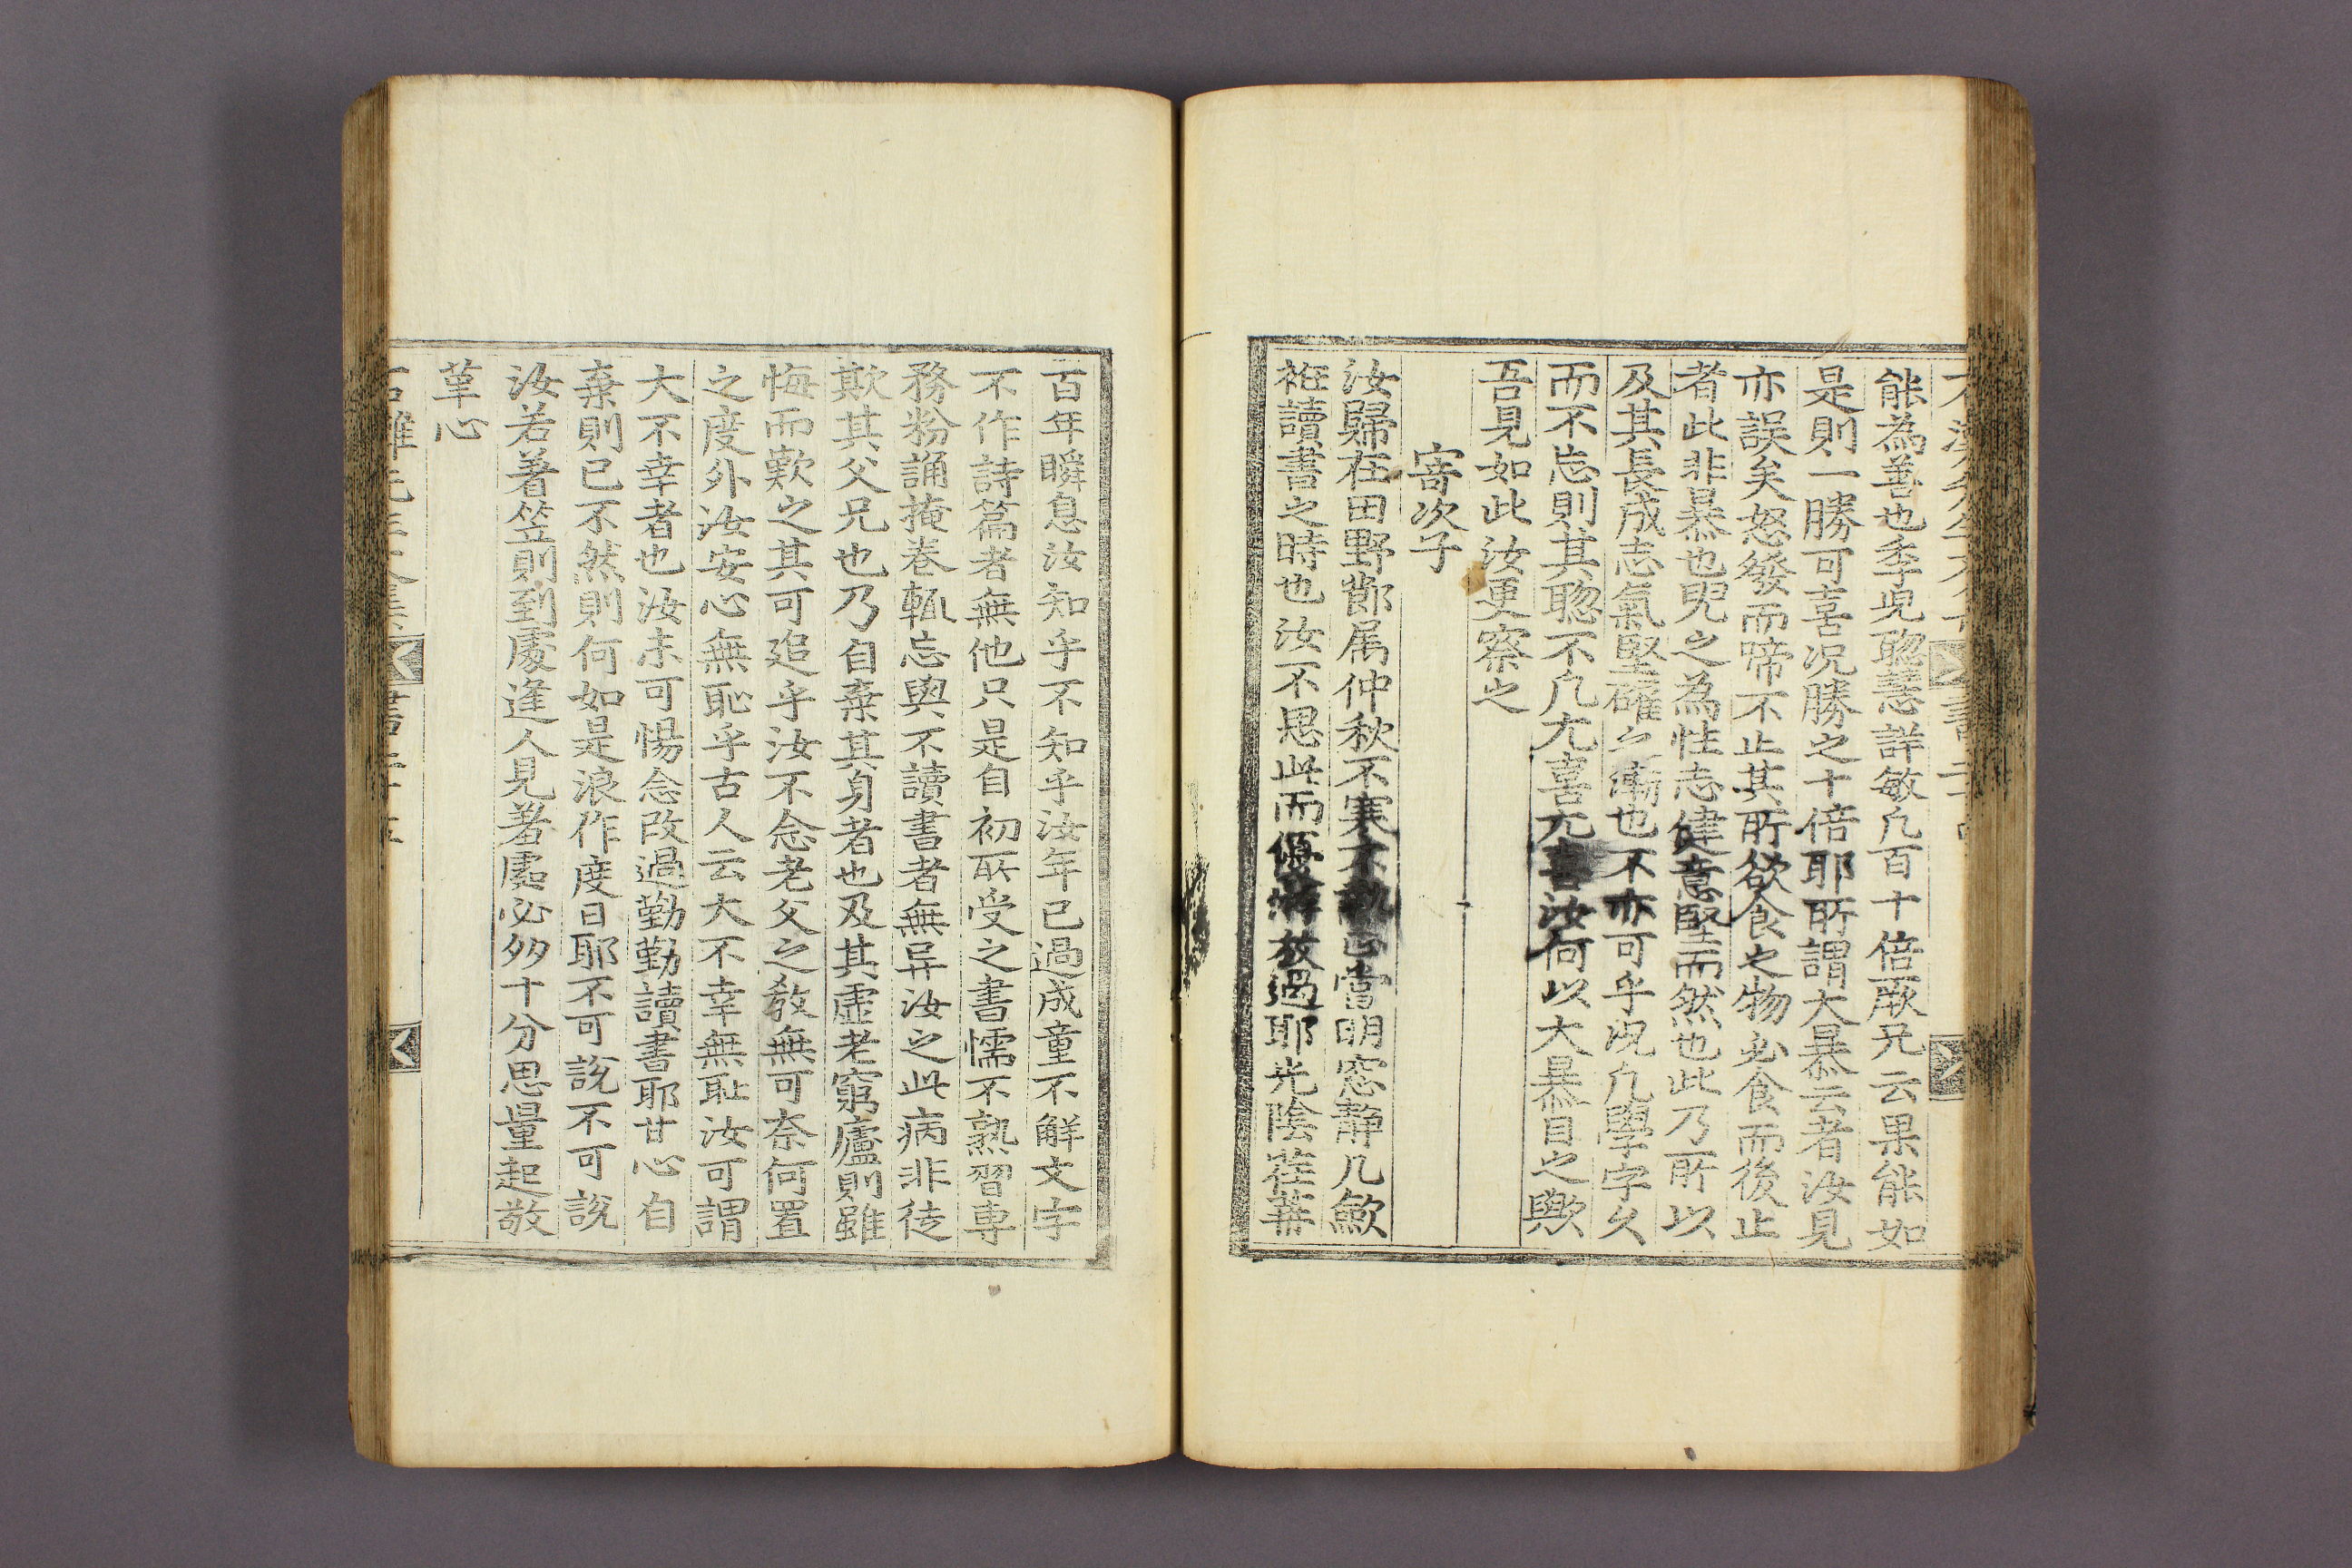 能為善也季兒聡慧詳敏凢百十倍厥兄云果能如
是則一勝可喜况勝之十倍耶所謂大暴云者汝見
亦誤矣怒發而啼不止其所欲食之物必食而後止
者此非暴也兒之為性志健意堅而然也此乃所以
及其長成志氣堅確之漸也不亦可乎况凢學字久
而不忘則其聡不凢尤喜尤喜汝何以大暴目之歟
吾見如此汝更察之
寄次子
汝歸在田野節属仲秋不寒不熱正當明窓静几歛
袵讀書之時也汝不思此而優游放過耶光陰荏苒
百年瞬息汝知乎不知乎汝年已過成童不解文字
不作詩篇者無他只是自初所受之書懦不熟習專
務粉誦掩卷輒忘與不讀書者無异汝之此病非徒
欺其父兄也乃自棄其身者也及其虛老窮廬則雖
悔而歎之其可追乎汝不念老父之敎無可奈何置
之度外汝安心無恥乎古人云大不幸無耻汝可謂
大不幸者也汝未可惕念改過勤勤讀書耶甘心自
棄則已不然則何如是浪作度日耶不可說不可說
汝若著笠則到處逢人見著處必多十分思量起敬
革心